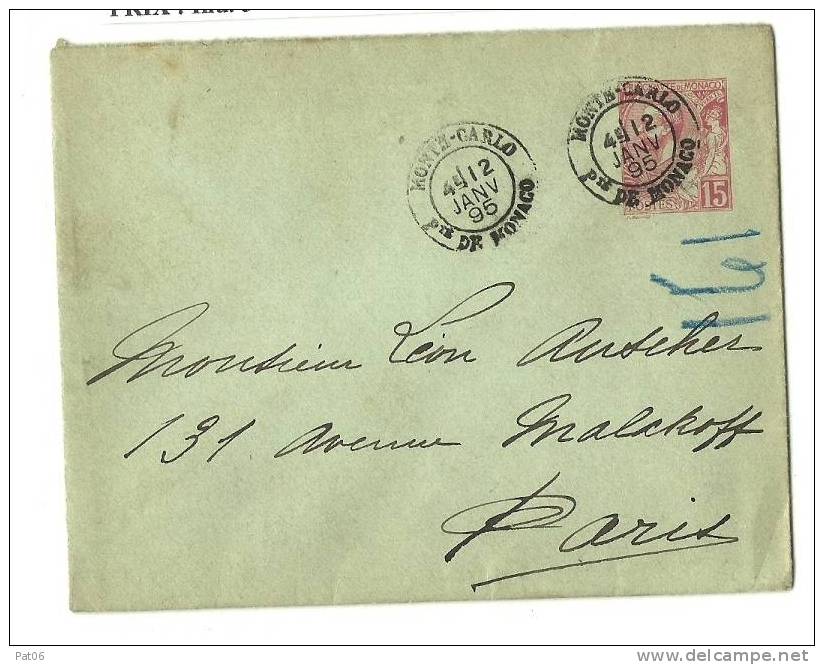 MONTE-CARLO
4E 12
JANV
95
PTÉ DE MONACO
MONTE-CARLO
4E 12
JANV
95
PTÉ DE MONACO
DE MONACO
15
POSTES
161
Monsieur Léon Auscher
131 Avenue Malakoff
Paris
Pat06
www.delcampe.net